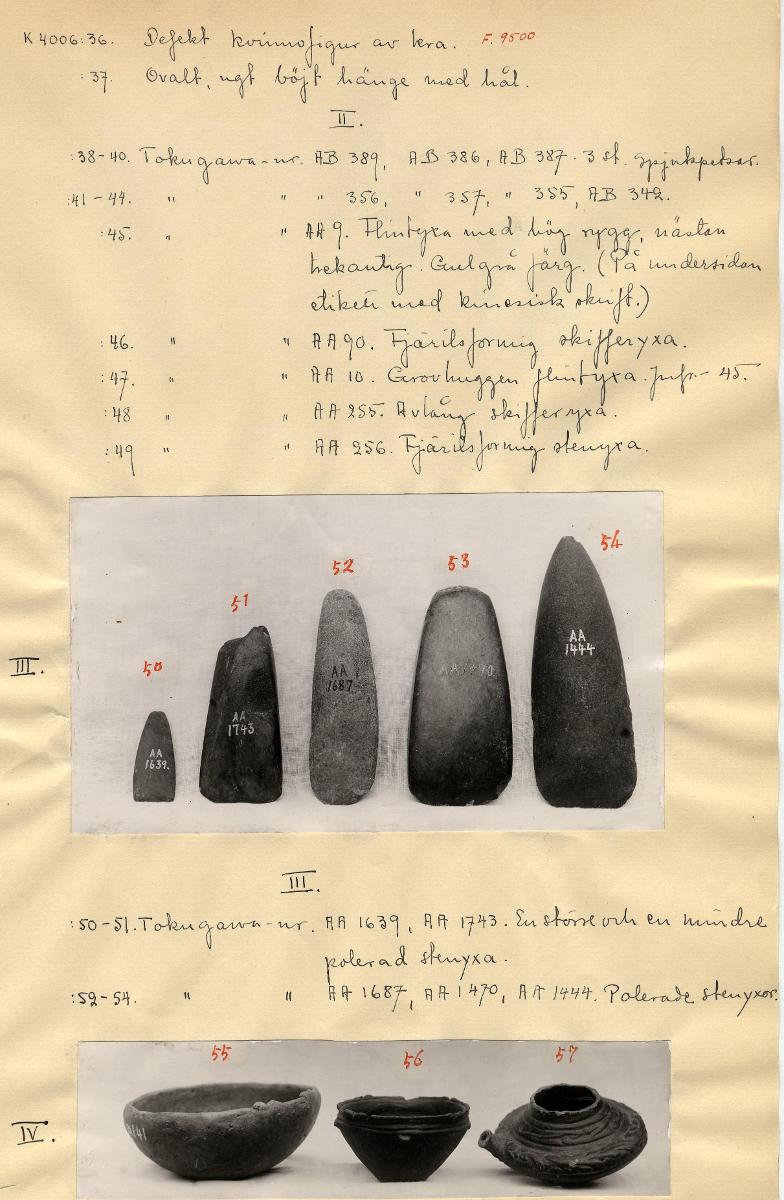 K 4006:36. Defekt kvinnofigur av lera. F. 9500
:37. Ovalt, ngt böjt hänge med hål.
II.
:38-40. Tokugawa-nr. AB 389, AB 386, AB 387. 3 st. spjutspetsar.
:41-44. " " " 356, " 357, " 355, AB 342.
:45. " " AA 9. Flintyxa med hög rygg, nästan
trekantig. Gulgrå färg. (På undersidan
etikett med kinesisk skrift.)
:46. " " AA 90. Fjärilsformig skifferyxa.
:47. " " AA 10. Grovhuggen flintyxa. Jmfr - 45.
:48 " " AA 255. Avlång skifferyxa.
:49 " " AA 256. Fjärilsformig stenyxa.
III.
50 51 52 53 54
AA 1639.
AA 1743
AA 1687
AA 1470
AA 1444
III.
:50-51. Tokugawa-nr. AA 1639, AA 1743. En större och en mindre
polerad stenyxa.
:52-54. " " AA 1687, AA 1470, AA 1444. Polerade stenyxor.
IV.
55 56 57